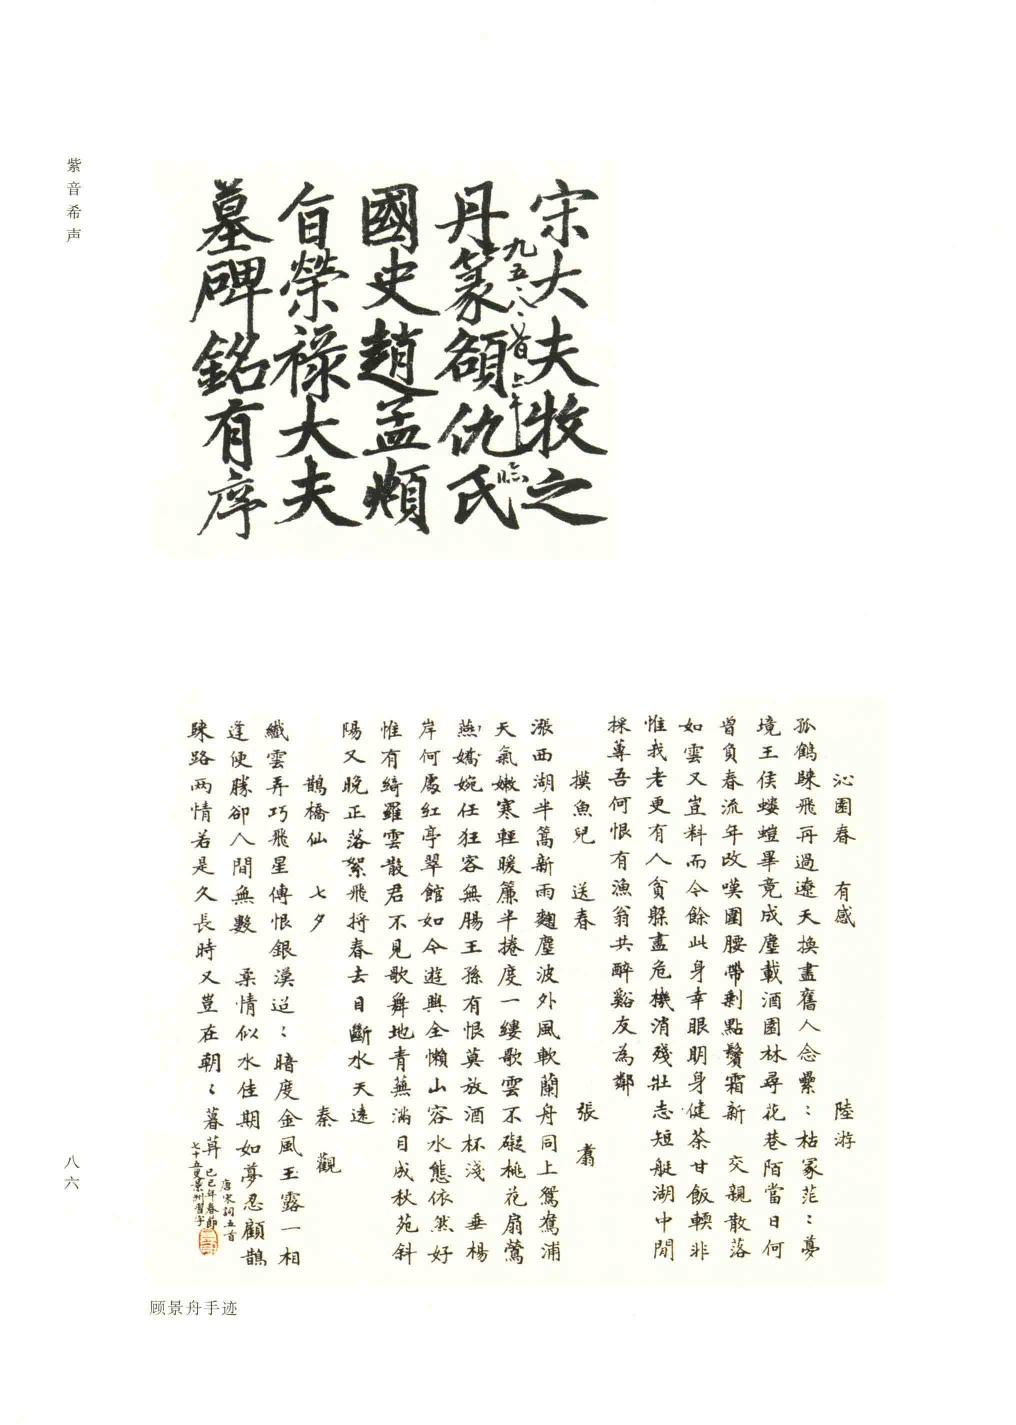 紫音希声
宋大夫牧之
丹篆額仇氏
國史趙孟頫
自榮祿大夫
墓碑銘有序
沁園春 有感 陸游
孤鶴歸飛再過遼天換盡舊人念纍〻枯冢茫〻夢
境王侯螻螘畢竟成塵載酒園林尋花巷陌當日何
曾負春流年改嘆圍腰帶剩點鬢霜新 交親散落
如雲又豈料而今餘此身幸眼明身健茶甘飯輭非
惟我老更有人貧躲盡危機消殘壯志短艇湖中閒
採蓴吾何恨有漁翁共醉谿友為鄰
摸魚兒 送春 張翥
漲西湖半篙新雨麴塵波外風軟蘭舟同上鴛鴦浦
天氣嫩寒輕暖簾半捲度一縷歌雲不礙桃花扇鶯
燕嬌婉任狂客無腸王孫有恨莫放酒杯淺 垂楊
岸何處紅亭翠館如今遊興全懶山容水態依然好
惟有綺羅雲散君不見歌舞地青蕪滿目成秋苑斜
陽又晚正落絮飛將春去目斷水天遠
鵲橋仙 七夕 秦觀
纖雲弄巧飛星傳恨銀漢迢〻暗度金風玉露一相
逢便勝卻人間無數 柔情似水佳期如夢忍顧鵲
歸路兩情若是久長時又豈在朝〻暮〻
唐宋詞五首
己巳年春節
七十五叟景州習字
八六
顾景舟手迹